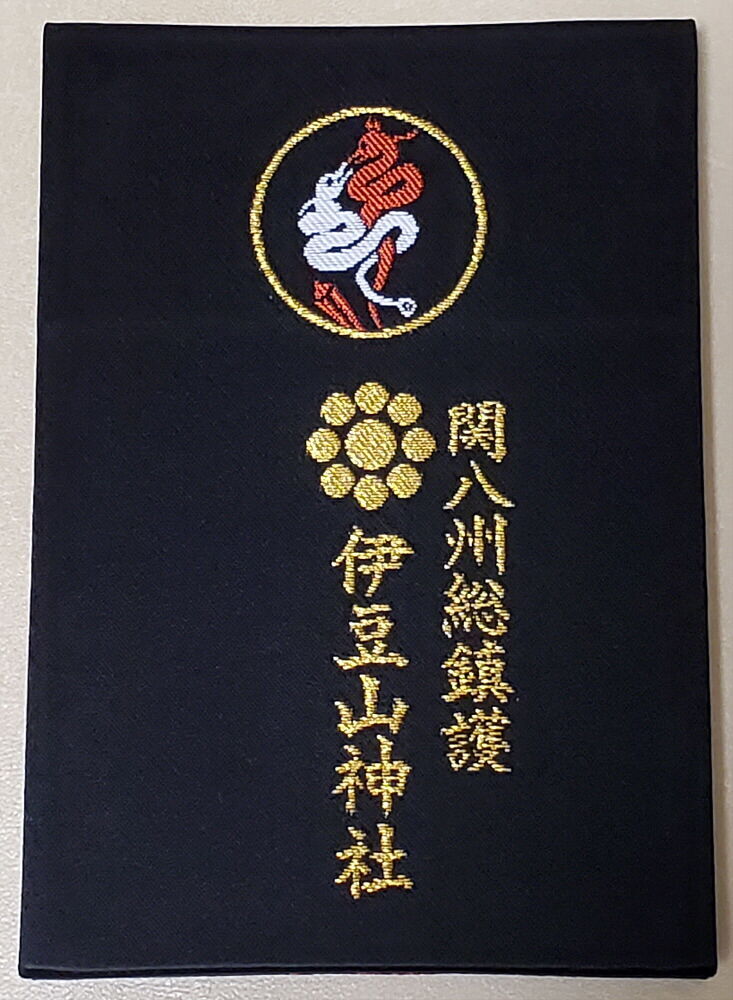 関八州総鎮護
伊豆山神社